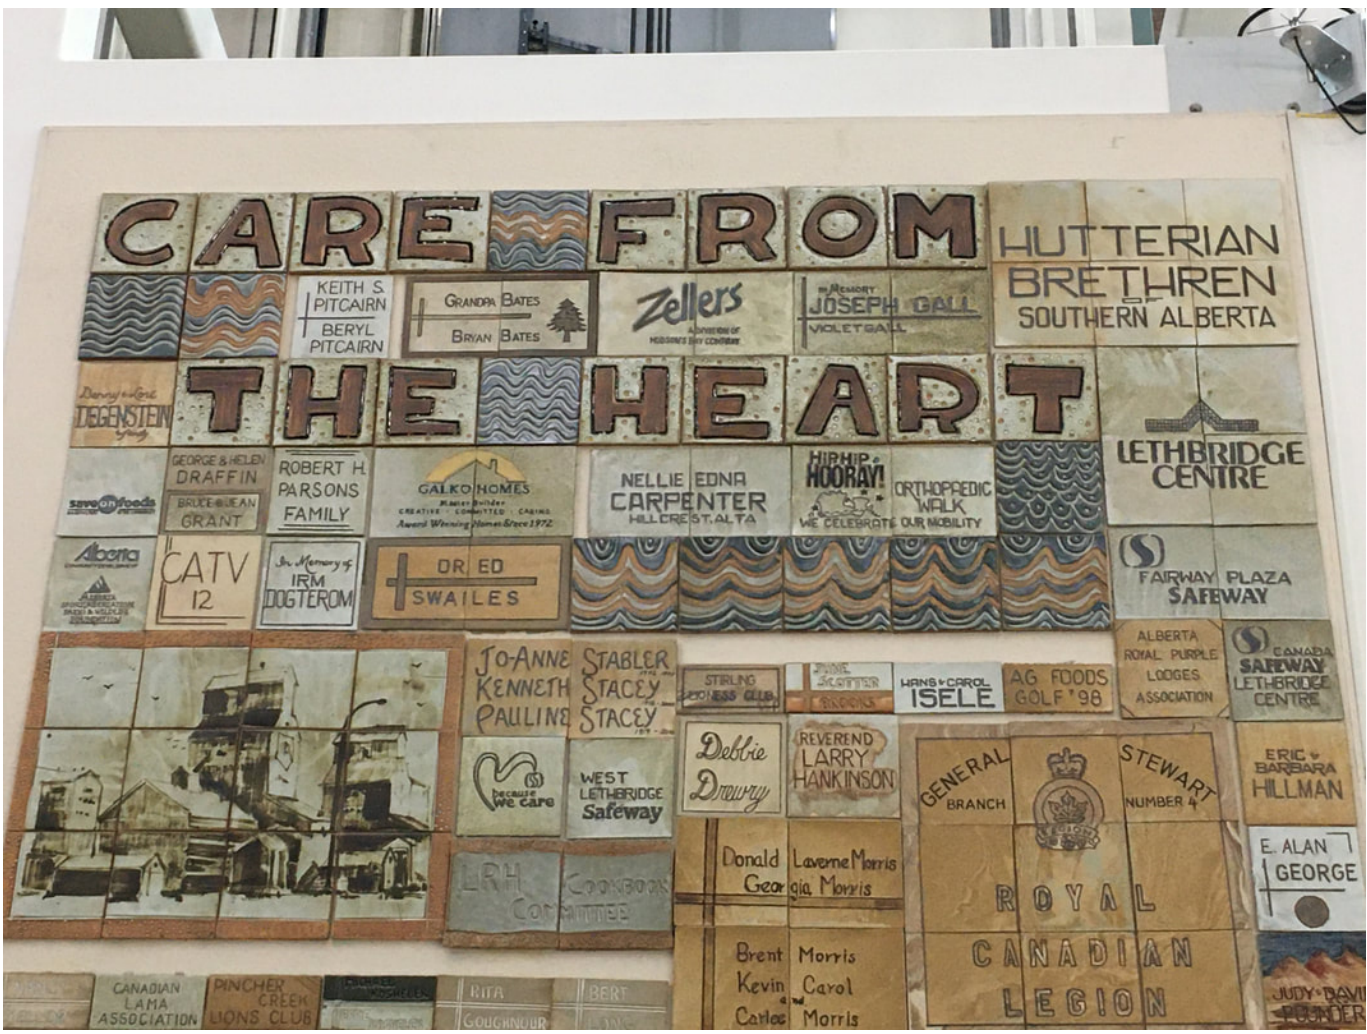 CARE FROM
HUTTERIAN
BRETHREN
OF
SOUTHERN ALBERTA
KEITH S.
PITCAIRN
BERYL
PITCAIRN
GRANDPA BATES
BRYAN BATES
Zellers
A DIVISION OF
HUDSON'S BAY COMPANY
IN MEMORY
JOSEPH GALL
VIOLET GALL
THE HEART
DEGENSTEIN
LETHBRIDGE
CENTRE
save on foods
GEORGE & HELEN
DRAFFIN
BRUCE & JEAN
GRANT
ROBERT H.
PARSONS
FAMILY
GALKO HOMES
Master Builder
CREATIVE · COMMITTED · CARING
Award Winning Homes Since 1972
NELLIE EDNA
CARPENTER
HILLCREST, ALTA
HIP HIP
HOORAY!
ORTHOPAEDIC
WALK
WE CELEBRATE OUR MOBILITY
Alberta
CATV
12
In Memory of
IRM
DOGTEROM
DR. ED
SWAILES
FAIRWAY PLAZA
SAFEWAY
JO-ANNE STABLER
KENNETH STACEY
PAULINE STACEY
STIRLING
LIONESS CLUB
JUNE
SCOTTER
BROOKS
HANS & CAROL
ISELE
AG FOODS
GOLF '98
ALBERTA
ROYAL PURPLE
LODGES
ASSOCIATION
CANADA
SAFEWAY
LETHBRIDGE
CENTRE
because
we care
WEST
LETHBRIDGE
Safeway
Debbie
Drewry
REVEREND
LARRY
HANKINSON
GENERAL STEWART
BRANCH NUMBER 4
LEGION
ROYAL
CANADIAN
LEGION
ERIC &
BARBARA
HILLMAN
LRH COOKBOOK
COMMITTEE
Donald Laverne Morris
Georgia Morris
Brent Morris
Kevin Carol
and
Carlee Morris
E. ALAN
GEORGE
CANADIAN
LAMA
ASSOCIATION
PINCHER
CREEK
LIONS CLUB
RITA
GOUGHNOUR
BERT
JUDY & DAVID
POUNDER